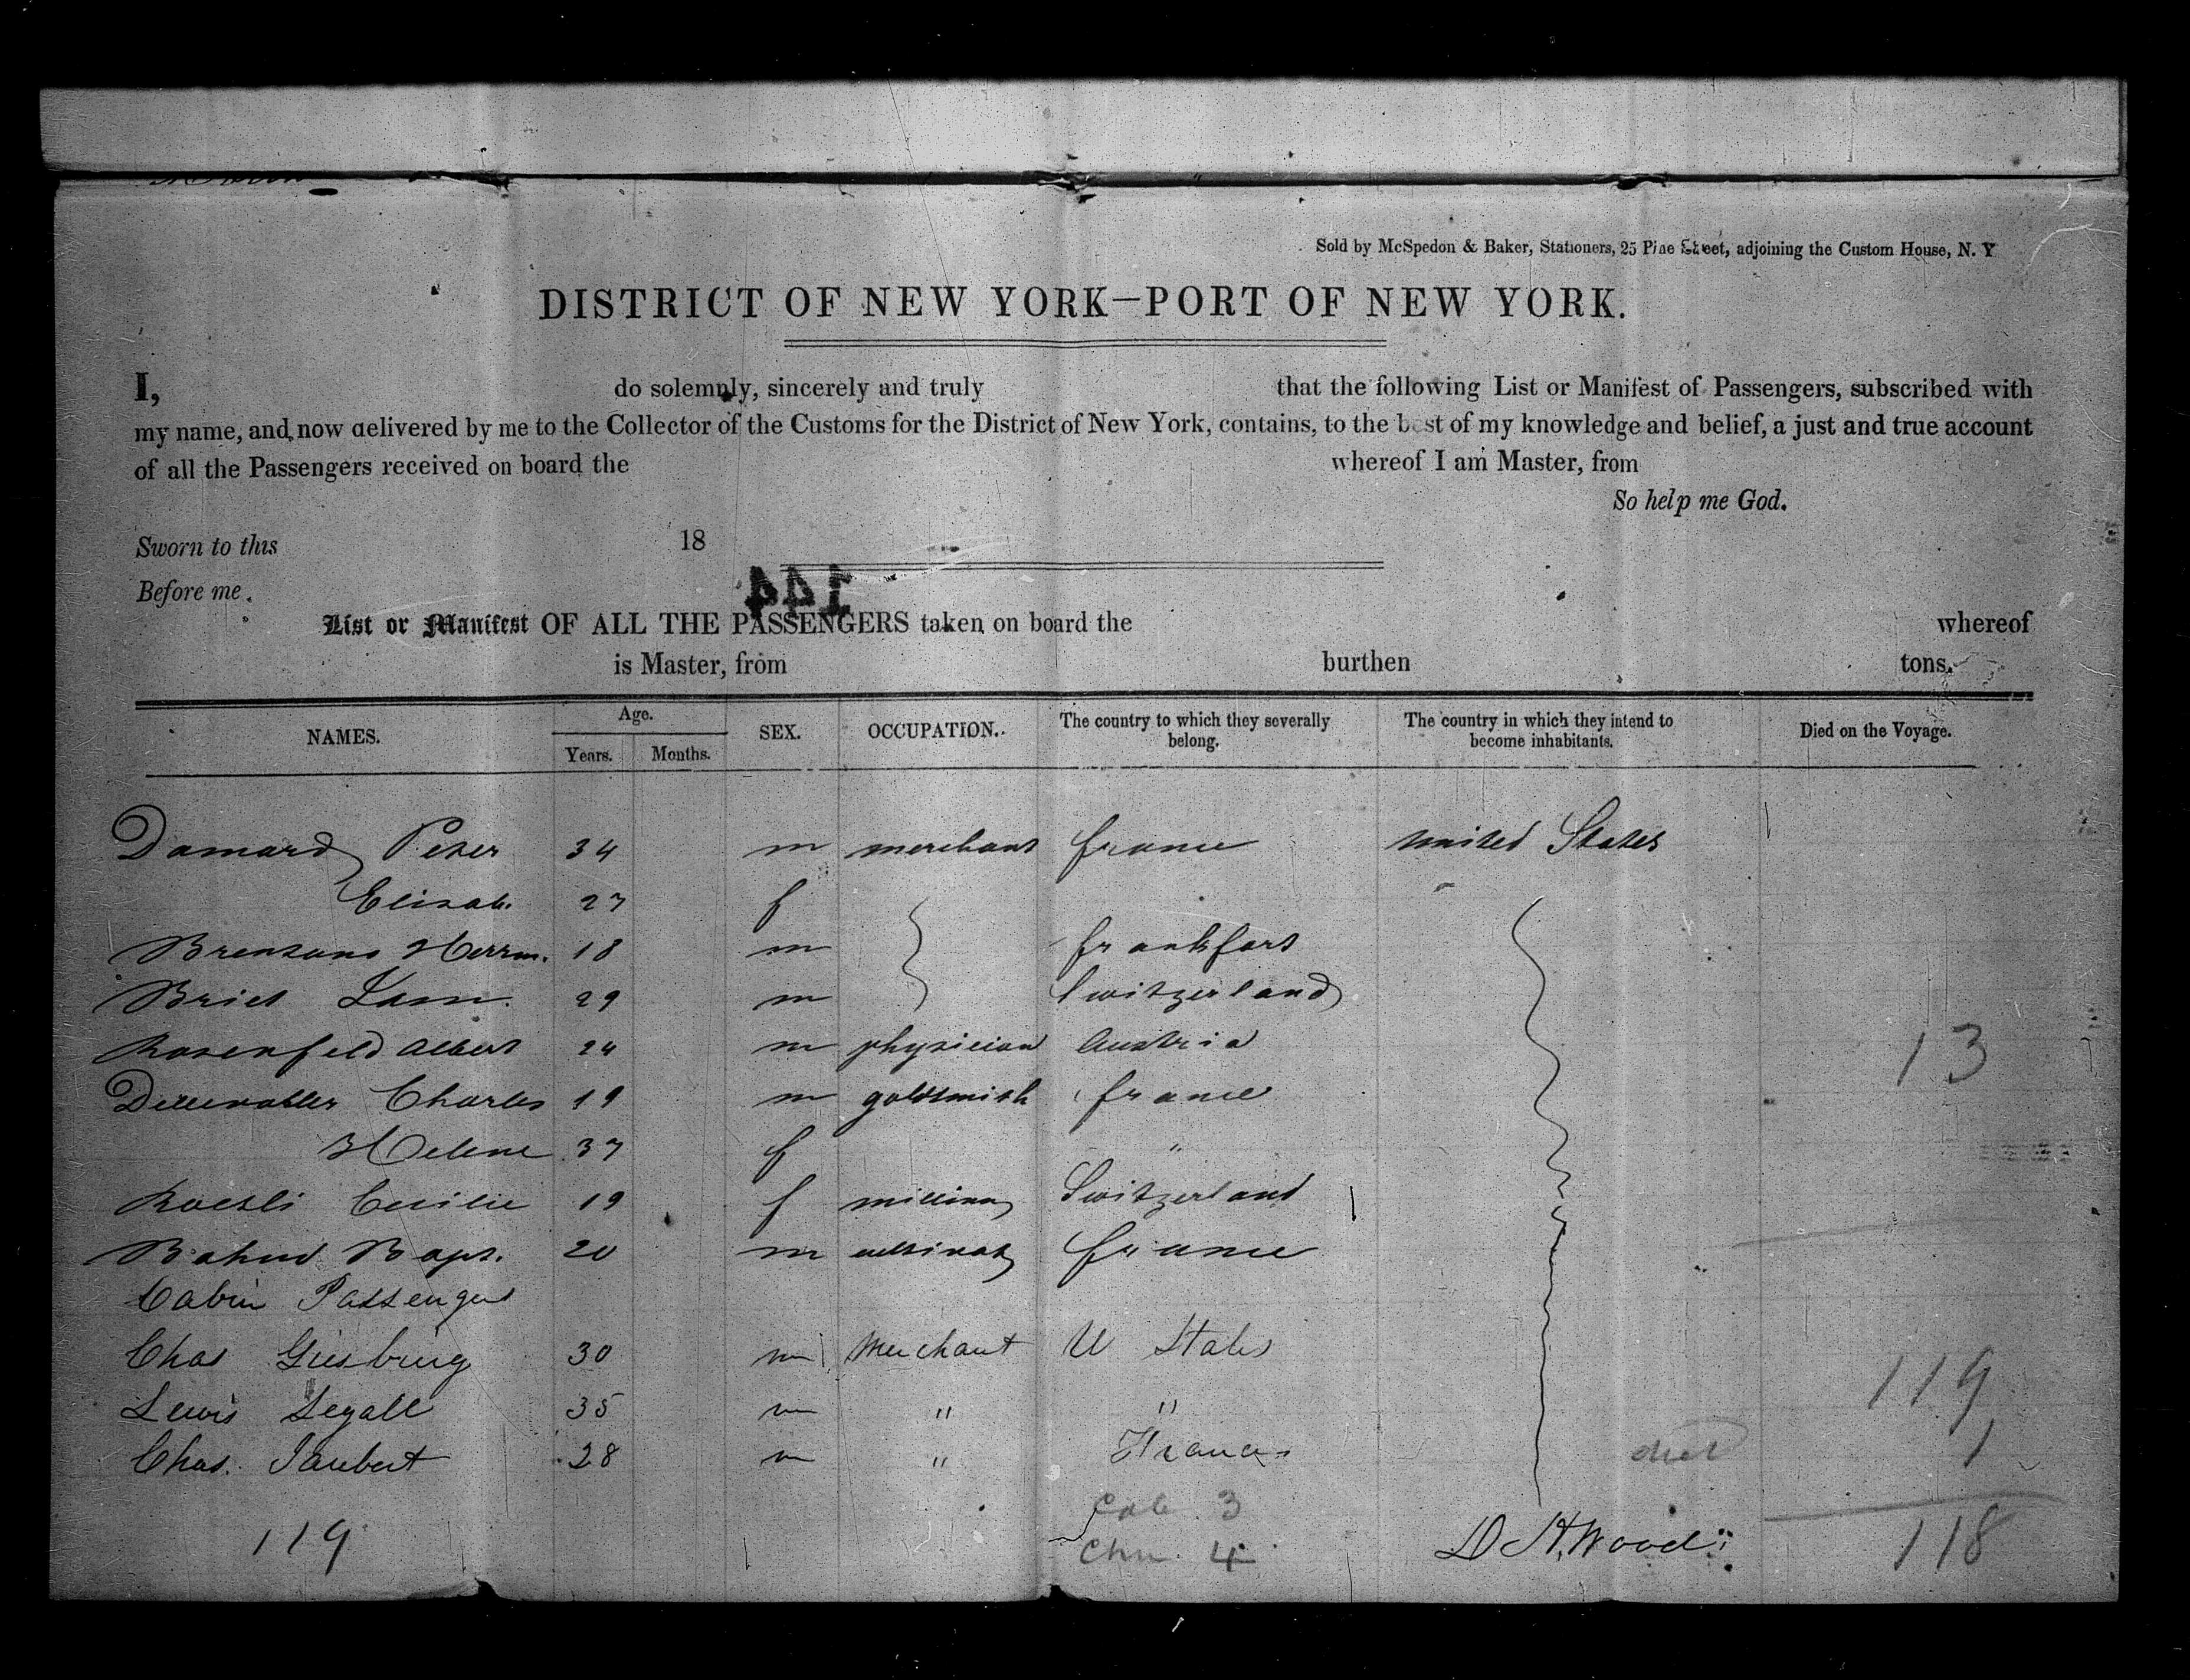 Sold by McSpedon & Baker, Stationers, 25 Pine Street, adjoining the Custom House, N. Y
DISTRICT OF NEW YORK—PORT OF NEW YORK.
I, do solemnly, sincerely and truly that the following List or Manifest of Passengers, subscribed with
my name, and now delivered by me to the Collector of the Customs for the District of New York, contains, to the best of my knowledge and belief, a just and true account
of all the Passengers received on board the whereof I am Master, from
So help me God.
Sworn to this 18
Before me.
144
List or Manifest OF ALL THE PASSENGERS taken on board the whereof
is Master, from burthen tons.
NAMES. Age. Years. Months. SEX. OCCUPATION. The country to which they severally belong. The country in which they intend to become inhabitants. Died on the Voyage.
Damard Peter 34 m merchant france united States
Elisab. 27 f
Brentano Herrm. 18 m frankfort
Briet 29 m Switzerland
Rosenfeld Albert 24 m physician Austria 13
Charles 19 m goldsmith france
Helene 37 f "
Roesli Cecilie 19 f Switzerland
Bapt. 20 m france
Cabin Passengers
Chas 30 m Merchant U States 119
Lewis Legall 35 m " "
Chas. Jaubert 28 m " France died 1
Cab 3
119 Chn. 4 D H. Wood 118